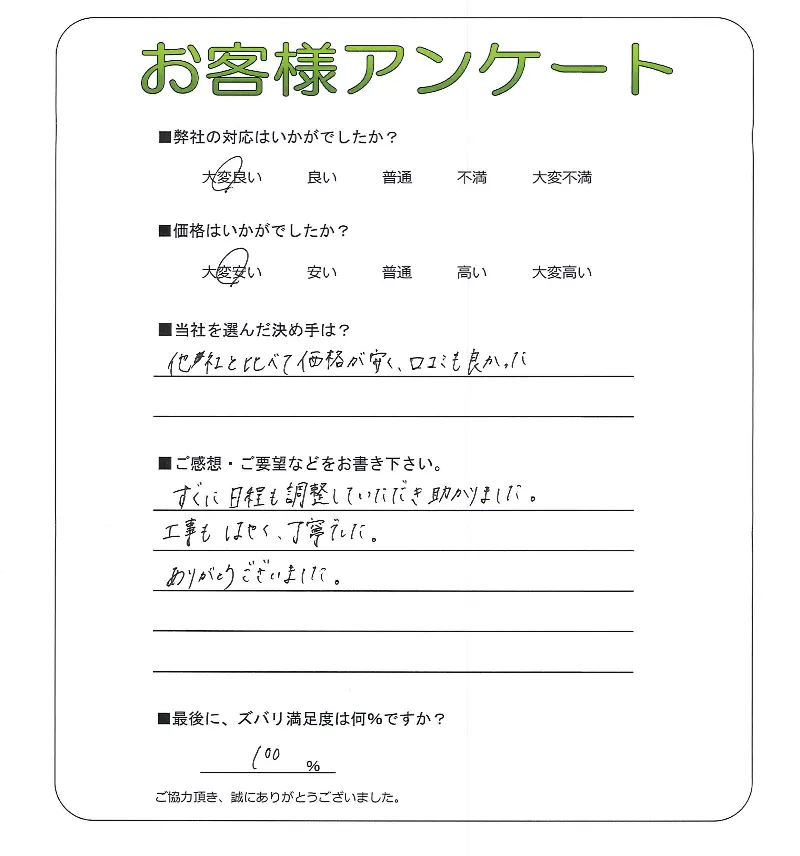 お客様アンケート
■弊社の対応はいかがでしたか？
大変良い 良い 普通 不満 大変不満
■価格はいかがでしたか？
大変安い 安い 普通 高い 大変高い
■当社を選んだ決め手は？
他社と比べて価格が安く、口コミも良かった
■ご感想・ご要望などをお書き下さい。
すぐに日程も調整していただき助かりました。
工事もはやく、丁寧でした。
ありがとうございました。
■最後に、ズバリ満足度は何%ですか？
100 %
ご協力頂き、誠にありがとうございました。